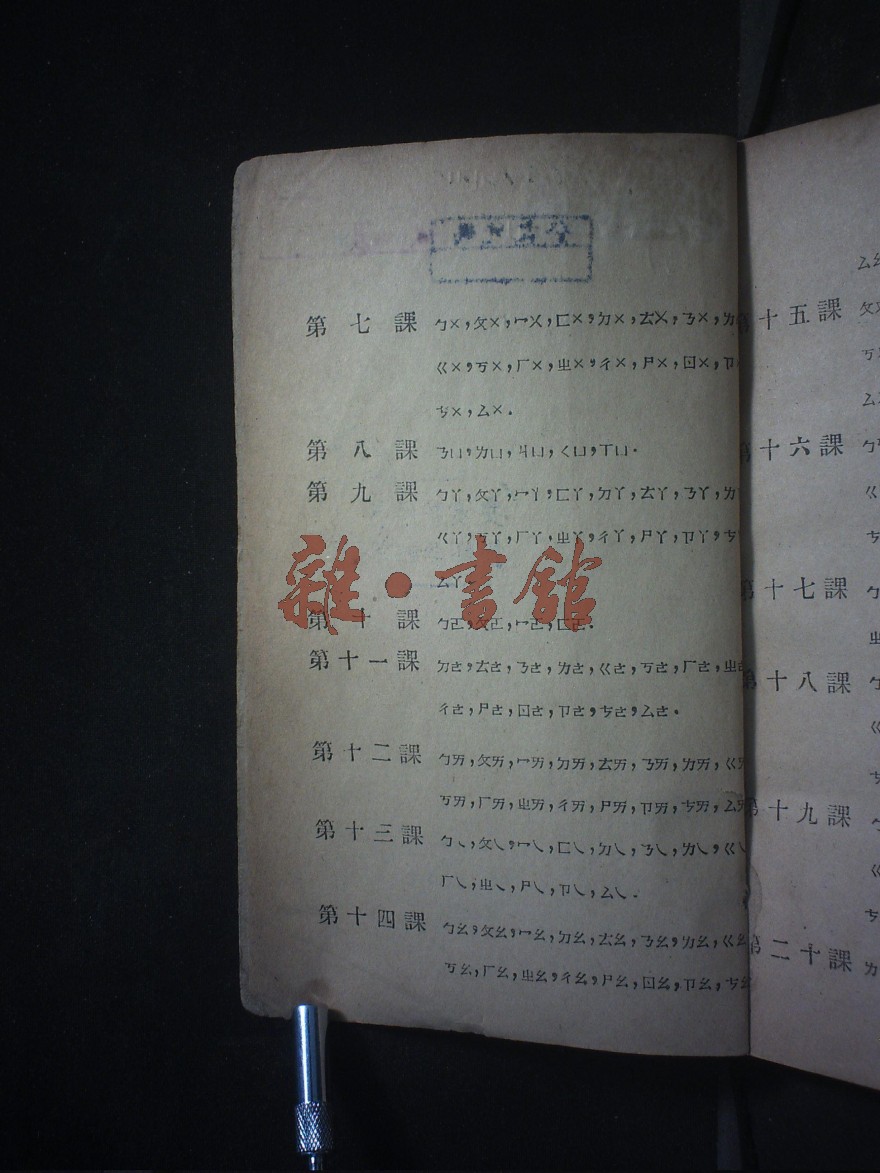 第七課 ㄅㄨ,ㄆㄨ,ㄇㄨ,ㄈㄨ,ㄉㄨ,ㄊㄨ,ㄋㄨ,ㄌ
ㄍㄨ,ㄎㄨ,ㄏㄨ,ㄓㄨ,ㄔㄨ,ㄕㄨ,ㄖㄨ,ㄗ
ㄘㄨ,ㄙㄨ.
第八課 ㄋㄩ,ㄌㄩ,ㄐㄩ,ㄑㄩ,ㄒㄩ.
第九課 ㄅㄚ,ㄆㄚ,ㄇㄚ,ㄈㄚ,ㄉㄚ,ㄊㄚ,ㄋㄚ,ㄌ
ㄍㄚ,ㄎㄚ,ㄏㄚ,ㄓㄚ,ㄔㄚ,ㄕㄚ,ㄗㄚ,ㄘ
ㄙㄚ
第十課 ㄅㄛ,ㄆㄛ,ㄇㄛ,ㄈㄛ.
第十一課 ㄉㄜ,ㄊㄜ,ㄋㄜ,ㄌㄜ,ㄍㄜ,ㄎㄜ,ㄏㄜ,ㄓㄜ
ㄔㄜ,ㄕㄜ,ㄖㄜ,ㄗㄜ,ㄘㄜ,ㄙㄜ.
第十二課 ㄅㄞ,ㄆㄞ,ㄇㄞ,ㄉㄞ,ㄊㄞ,ㄋㄞ,ㄌㄞ,ㄍㄞ
ㄎㄞ,ㄏㄞ,ㄓㄞ,ㄔㄞ,ㄕㄞ,ㄗㄞ,ㄘㄞ,ㄙㄞ
第十三課 ㄅㄟ,ㄆㄟ,ㄇㄟ,ㄈㄟ,ㄉㄟ,ㄋㄟ,ㄌㄟ,ㄍㄟ
ㄏㄟ,ㄓㄟ,ㄕㄟ,ㄗㄟ,ㄙㄟ.
第十四課 ㄅㄠ,ㄆㄠ,ㄇㄠ,ㄉㄠ,ㄊㄠ,ㄋㄠ,ㄌㄠ,ㄍㄠ
ㄎㄠ,ㄏㄠ,ㄓㄠ,ㄔㄠ,ㄕㄠ,ㄖㄠ,ㄗㄠ,ㄘㄠ
雜·書館
ㄙㄠ
第十五課 ㄆ
ㄎ
ㄙ
第十六課 ㄅ
ㄍ
ㄘ
第十七課 ㄅ
ㄓ
第十八課 ㄅ
ㄍ
ㄘ
第十九課 ㄅ
ㄍ
ㄘ
第二十課 ㄌ